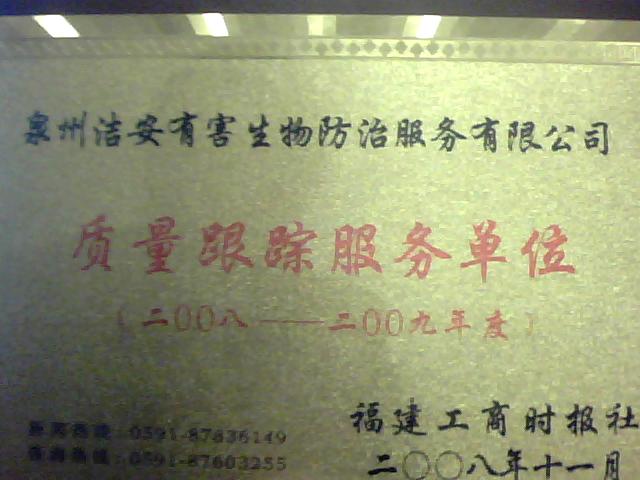 泉州洁安有害生物防治服务有限公司
质量跟踪服务单位
(二00八——二00九年度)
福建工商时报社
热线:0591-87836149
热线:0591-87603255
二〇〇八年十一月